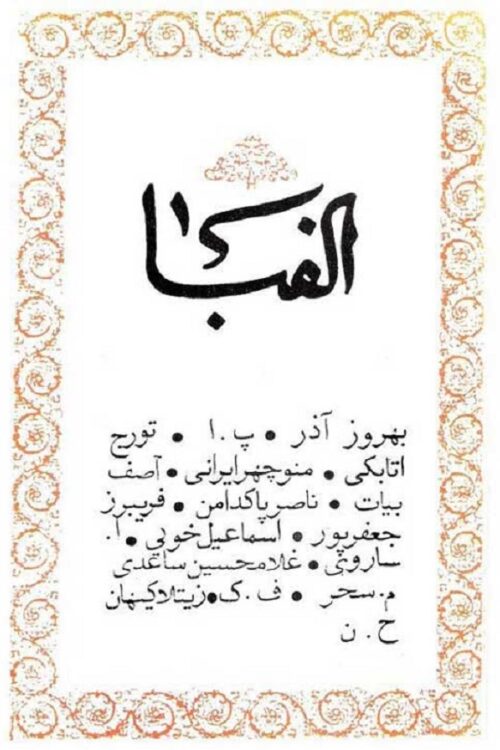 الفبا
بهروز آذر • پ.ا • تورج
اتابکی • منوچهر ایرانی • آصف
بیات • ناصر پاکدامن • فریبرز
جعفرپور • اسماعیل خوئی • ا.
ساروئی • غلامحسین ساعدی
م.سحر • ف.ک • زیتلا کیهان
ح.ن